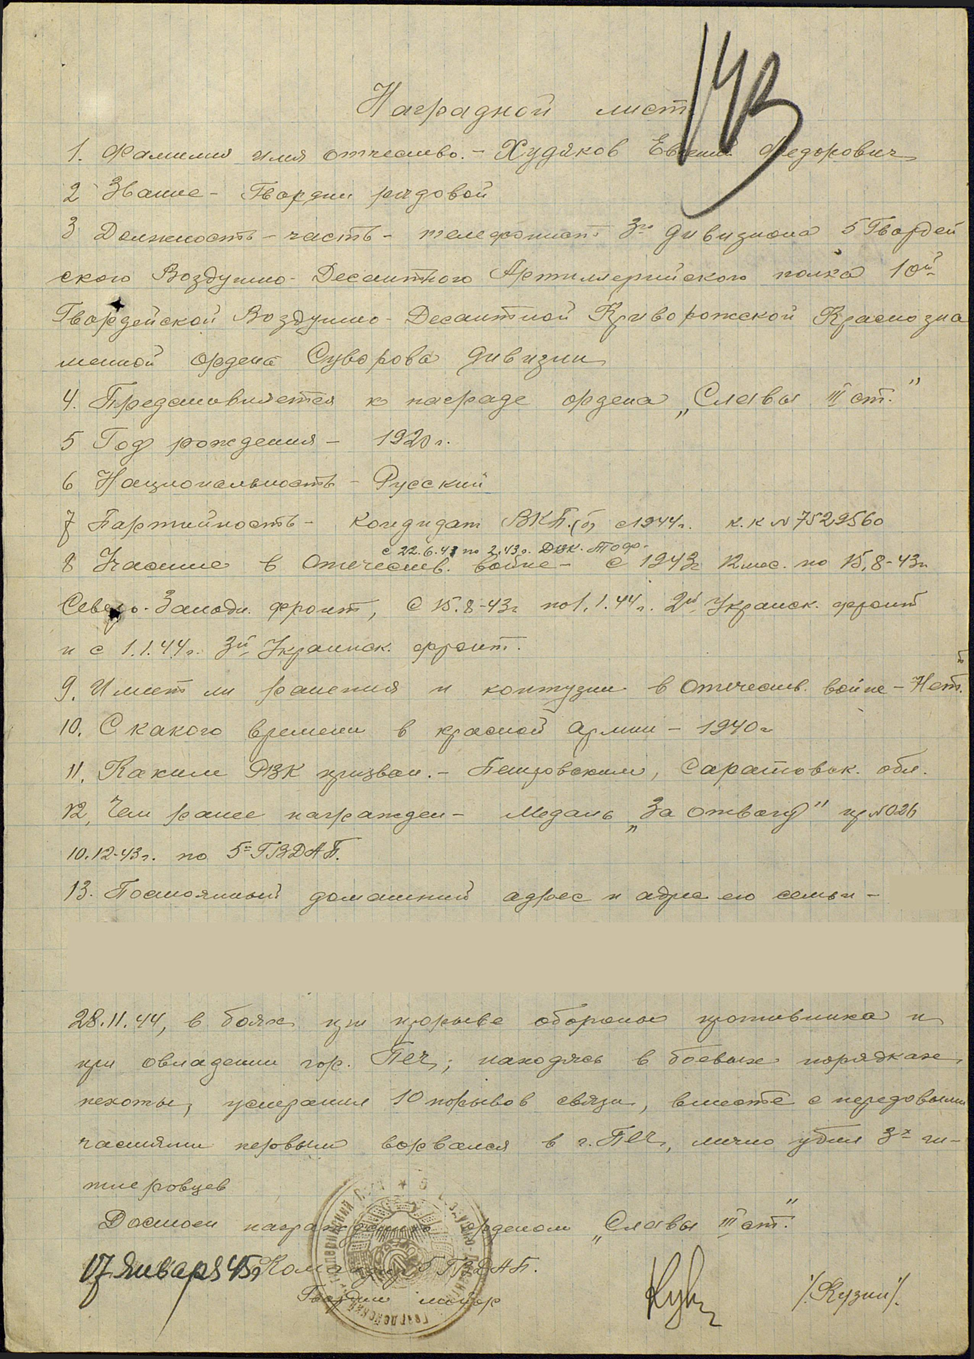 143
Наградной лист
1. Фамилия имя отчество. - Худяков Евгений Федорович
2 Звание - Гвардии рядовой
3 Должность - часть - телефонист 3го дивизиона 5 Гвардей
ского Воздушно-Десантного Артиллерийского полка 10й
Гвардейской Воздушно-Десантной Криворожской Краснозна
менной ордена Суворова дивизии
4. Представляется к награде ордена „Славы III ст."
5 Год рождения - 1920 г.
6 Национальность - Русский
7 Партийность - Кандидат ВКП.(б) с 1944 г. к.к №7529560
с 22.6.41 по 2.43 г. Тоф.
8 Участие в Отечеств. войне - с 1943 г 12 мес. по 15.8-43 г
Северо-Западн. фронт, с 15.8-43 г по 1.1.44 г. 2й Украинск. фронт
и с 1.1.44 г. 3й Украинск. фронт.
9. Имеет ли ранения и контузии в отечеств. войне - Нет.
10. С какого времени в красной армии - 1940 г
11. Каким РВК призван. - Саратовск. обл.
12. Чем ранее награжден - Медаль „За отвагу" пр №026
10.12-43 г. по 5му ГВДАП.
13. Постоянный домашний адрес и адрес его семьи -
28.11.44, в боях при прорыве обороны противника и
при овладении гор. Печ, находясь в боевых порядках
пехоты, устранил 10 порывов связи, вместе с передовыми
частями первым ворвался в г. Печ, лично убил 3х ги-
тлеровцев
Достоен награждения орденом „Славы III ст."
17 Января 45 г Командир 5 ГВДАП.
Гвардии майор /Кузин/.